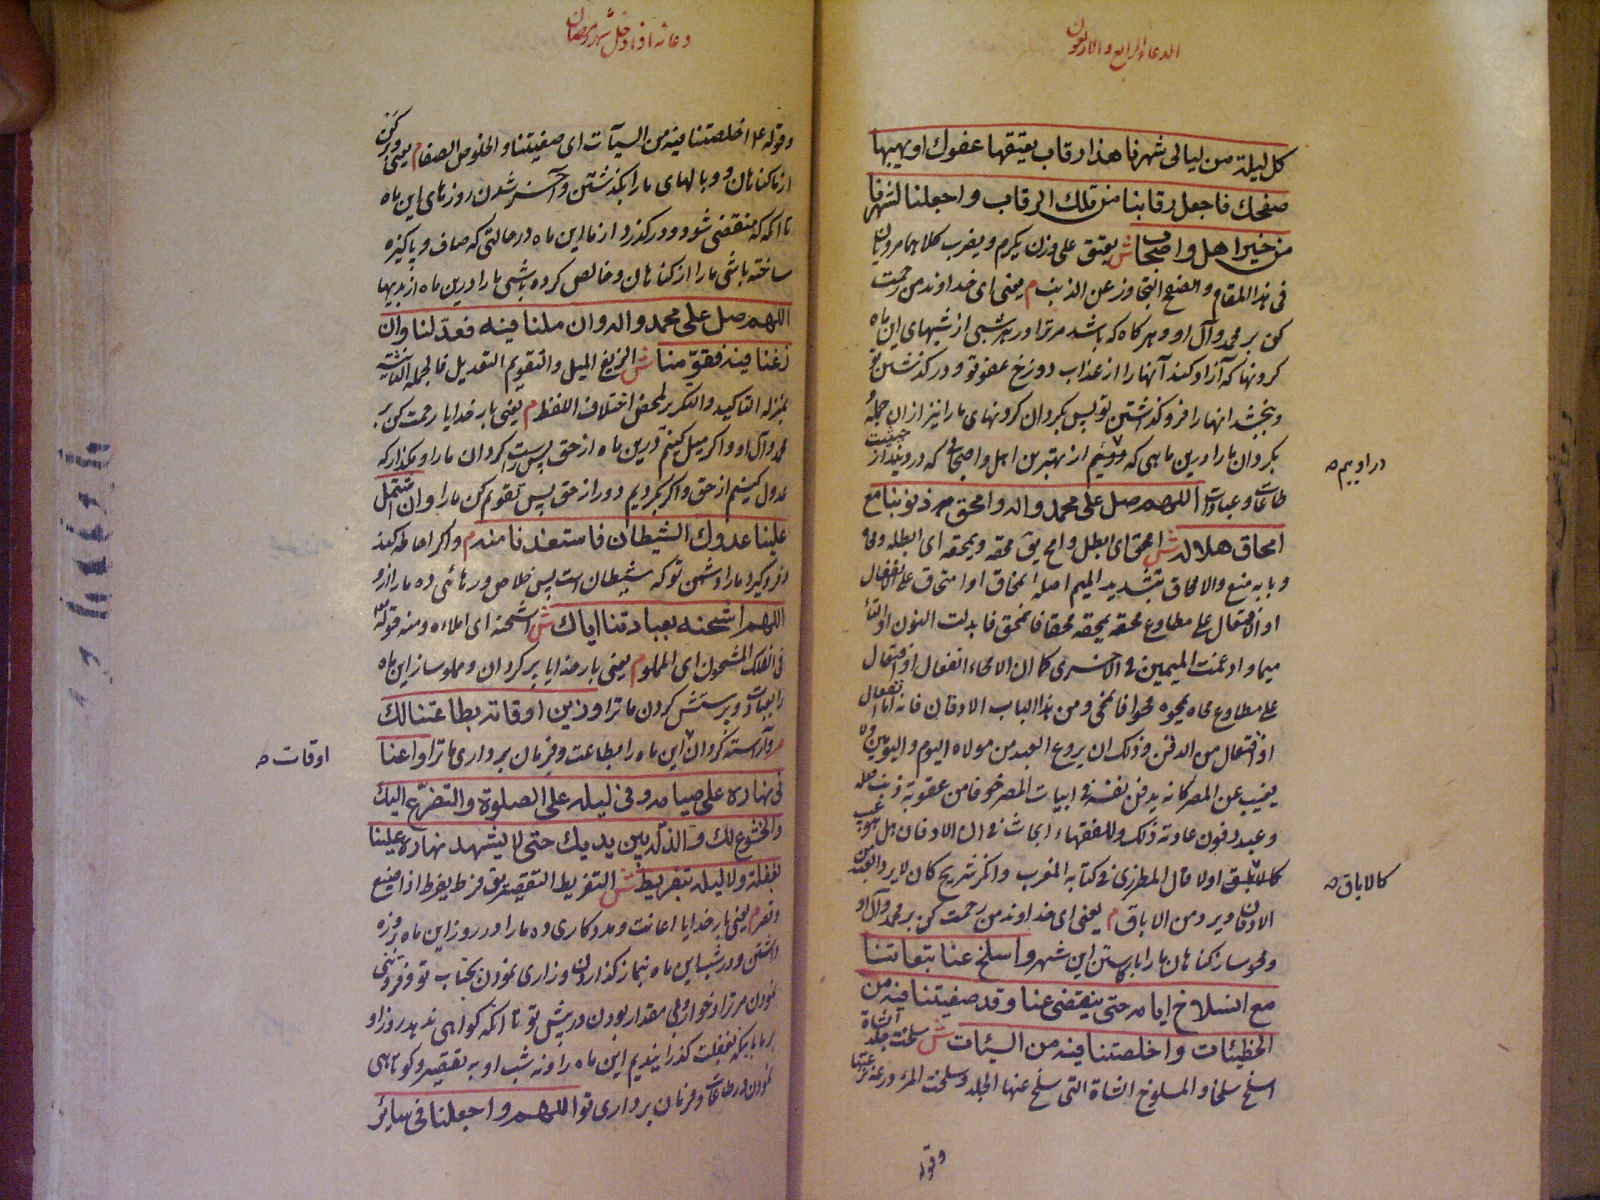 الدعاء الرابع والاربعون
كل ليلة من ليالى شهرنا هذا رقاب يعتقها عفوك او يهبها
صفحك فاجعل رقابنا من تلك الرقاب واجعلنا لشهرنا
من خير اهل واصحاب ش يعتق على وزن يكرم ويضرب كلاهما مرويان
فى هذا المقام والصفح التجاوز عن الذنب م يعنى اى خداوند من رحمت
كن بر محمد وآل او وهركاه كه باشد مر ترا در هر شبى از شبهاى اين ماه
كردنها كه آزاد كند آنها را از عذاب دوزخ عفو تو ودر كذشتن تو
وببخشد انها را فرو كذشتن تو پس بكردان كردنهاى ما را نيز از ان جمله و
بكردان ما را درين ماهى كه از بهترين اهل واصحاب كه
در اوييم صه
طاعات وعبادات اللهم صل على محمد واله وامحق ذنوبنا مع
امحاق هلاله ش امحق اى ابطل وامح يق محقه ويمحقه اى ابطله ومحاه
وبابه منع والامحاق بتشديد الميم اصله انمحاق او امتحاق على الانفعال
او الافتعال على مطاوع محقه يمحقه محقا فانمحق فابدلت النون او التاء
ميما وادغمت الميمين فى الاخرى كما ان الامحاء انفعال او افتعال
على مطاوع محاه يمحوه محوا فانمحى ومن هذا الباب الادفان فانه اما انفعال
او افتعال من الدفن وذلك ان يروع العبد من مولاه اليوم واليومين ولا
يغيب عن المصر كانه يدفن نفسه فى ابيات المصر خوفا من عقوبة ذنب فعله
وعبد دفون عادته ذلك وللفقهاء ابحاث فى ان الادفان هل هو عيب
كالاباق اولا قال المطرزى فى كتابه المغرب واكثر شريح كان لا يرد العبد من
كالاباق صه
الادفان ويرد من الاباق م يعنى اى خداوند من رحمت كن بر محمد وآل او
ومحو ساز كناهان ما را با اين شهر واسلخ عنا تبعاتنا
مع انسلاخ ايامه حتى ينقضى عنا وقد صفيتنا فيه من
الخطيئات واخلصتنا فيه من السيئات ش سلخت جلد الشاة
اسلخ سلخا والمسلوخ الشاة التى سلخ عنها الجلد وسلخت المرأة درعها نزعتها
وقوله
دعائه اذا دخل شهر رمضان
وقوله ع اخلصتنا فيه من السيآت اى صفيتنا والخلوص الصفا م يعنى وبركن
از ما كناهان ووبالهاى ما را بكذشتن وآخر شدن روزهاى اين ماه
تا آنكه منقضى شود ودر كذرد از ما اين ماه در حالتى كه صاف وپاكيزه
ساخته باشى ما را از كناهان وخالص كرده باشى ما را درين ماه از بديها
اللهم صل على محمد واله وان ملنا فيه فعدلنا وان
زغنا فيه فقومنا ش الزيغ الميل والتقويم التعديل فالجملة الثانية
بمنزلة التاكيد والتكرير لمحض اختلاف اللفظ م يعنى بار خدايا رحمت كن بر
محمد وآل او واكر ميل كنيم درين ماه از حق پس راست كردان ما را ومكذار كه
عدول كنيم از حق واكر بكرديم دور از حق پس تقويم كن ما را وان اشتمل
علينا عدوك الشيطان فاستنقذنا منه م واكر احاطه كند
وفروكيرد ما را دشمن تو كه شيطان است پس خلاص ورهائى ده ما را ازو
اللهم اشحنه بعبادتنا اياك ش اشحنه اى املاءه ومنه قوله تع
فى الفلك المشحون اى المملو م يعنى بار خدايا پر كردان ومملو ساز اين ماه
را بعبادت وپرستش كردن ما ترا وزين اوقاته بطاعتنا لك
م وآراسته كردان اين ماه را بطاعت وفرمان بردارى ما ترا واعنا
اوقات صه
فى نهاره على صيامه وفى ليله على الصلوة والتضرع اليك
والخشوع لك والذلة بين يديك حتى لا يشهد نهاره علينا
بغفلة ولا ليله بتفريط ش التفريط التقصير يق فرط يفرط اذا ضيع
وقصر م يعنى بار خدايا اعانت ومددكارى ده ما را در روز اين ماه بروزه
داشتن ودر شب اين ماه بنماز كذاردن وزارى نمودن بجناب تو وفروتنى
نمودن مر ترا وخوار وبى مقدار بودن در پيش تو تا آنكه كواهى ندهد روز او
بر ما باينكه بغفلت كذرانيديم اين ماه را ونه شب او به تقصير وكوتاهى
نمودن در طاعات وفرمان بردارى تو اللهم واجعلنا فى سائر